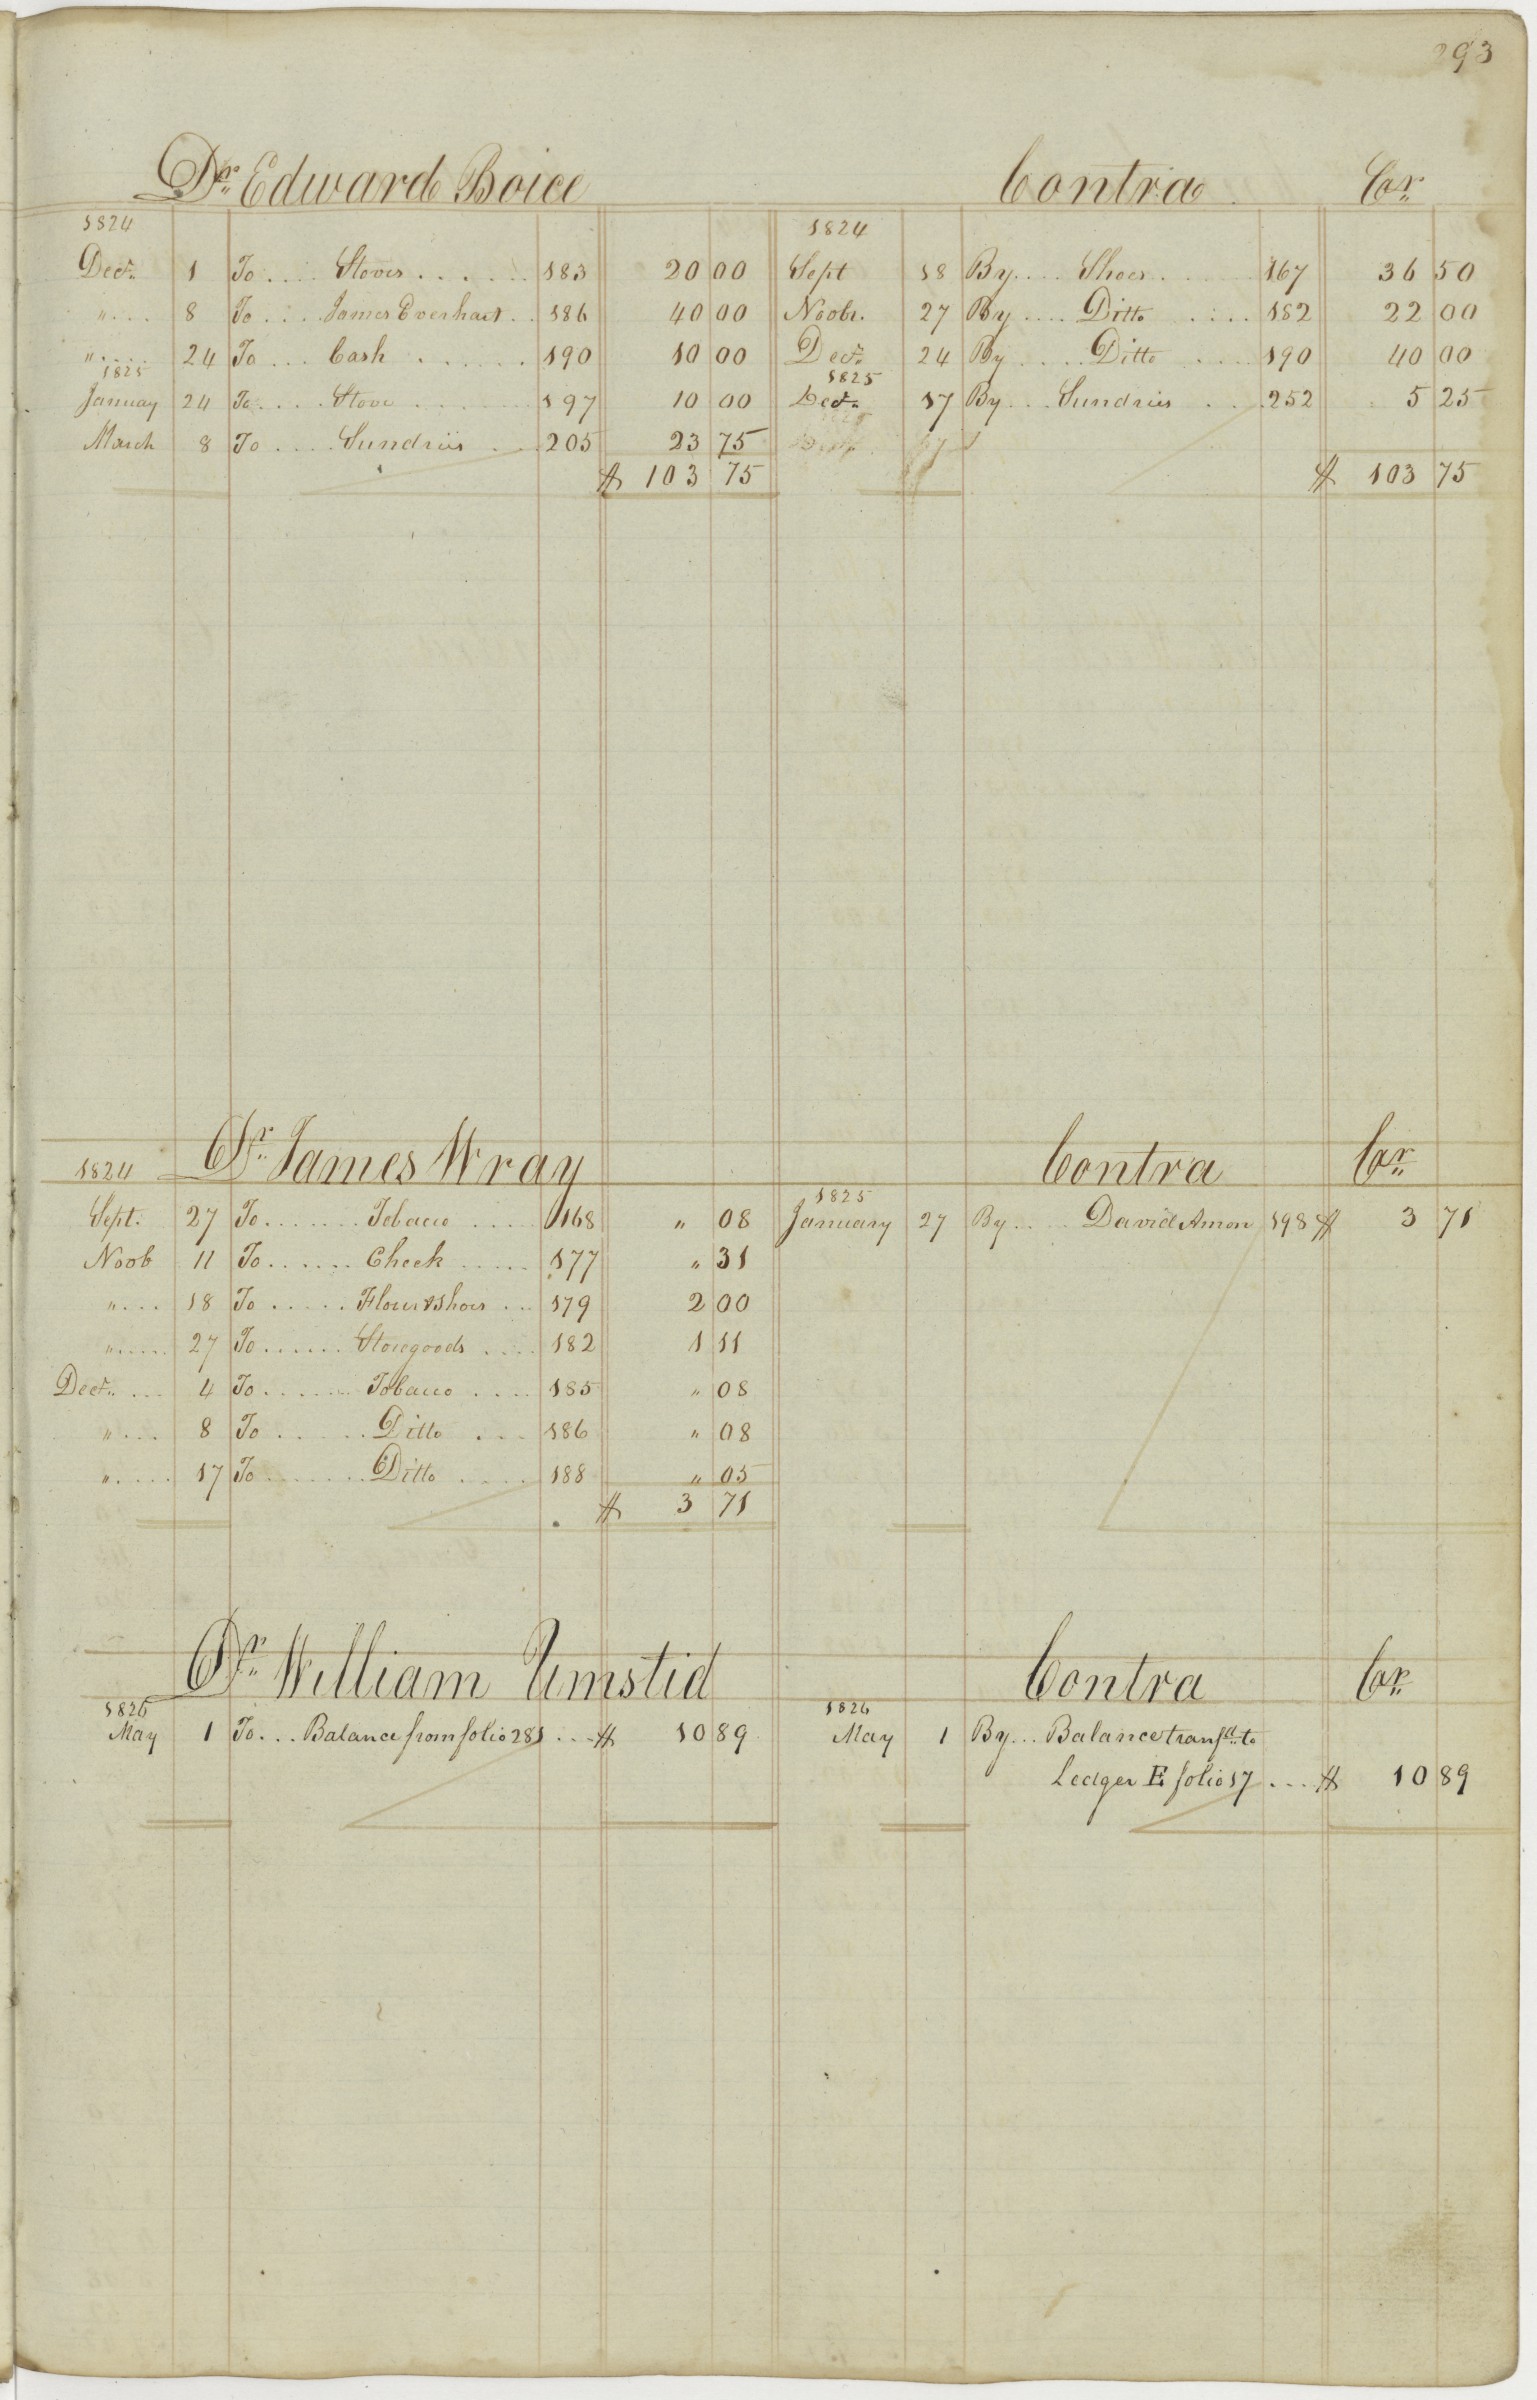 293
Dr. Edward Boice Contra Cr.
1824 1824
Decr. 1 To .... Stoves ...... 183 20 00 Sept 18 By .... Shoes ... 167 36 50
" .... 8 To .... James Everhart .. 186 40 00 Novbr. 27 By .... Ditto .... 182 22 00
" .... 24 To ... Cash ...... 190 10 00 Decr. 24 By .... Ditto ... 190 40 00
1825 1825
January 24 To .... Stove ...... 197 10 00 Decr. 17 By ... Sundries .. 252 5 25
March 8 To .... Sundries ... 205 23 75
$ 103 75 $ 103 75
Dr. James Wray Contra Cr.
1824 1825
Sept. 27 To ....... Tobacco .... 168 " 08 January 27 By .... David Amon 198 $ 3 71
Novb 11 To ...... Check ..... 177 " 31
" ... 18 To ..... Flour & Shoes ... 179 2 00
" ..... 27 To ...... Storegoods .... 182 1 11
Decr. ... 4 To ....... Tobacco .... 185 " 08
" ... 8 To ...... Ditto ... 186 " 08
" .... 17 To ....... Ditto .... 188 " 05
$ 3 71
Dr. William Umstid Contra Cr.
1826 1826
May 1 To ... Balance from folio 281 ... $ 10 89 May 1 By ... Balance transfd. to
Ledger E folio 17 ... $ 10 89